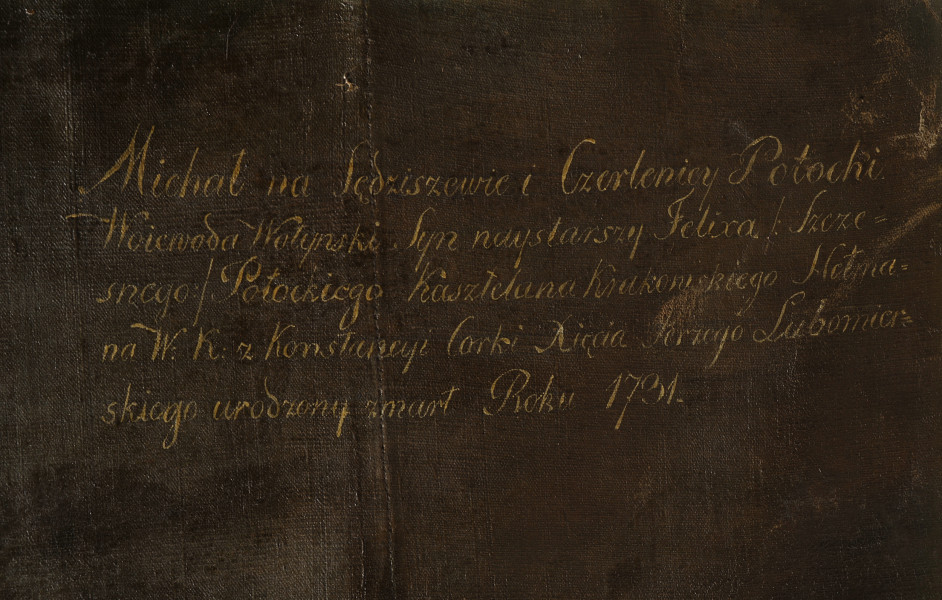 Michał na Sędziszewie i Czerlenicy Potocki
Woiewoda Wołynski Syn naystarszy Felixa /: Szcze=
snego:/ Potockiego Kasztelana Krakowskiego Hetma=
na W: K: z Konstancyi Corki Xięcia Jerzego Lubomier=
skiego urodzony zmarł Roku 1731.